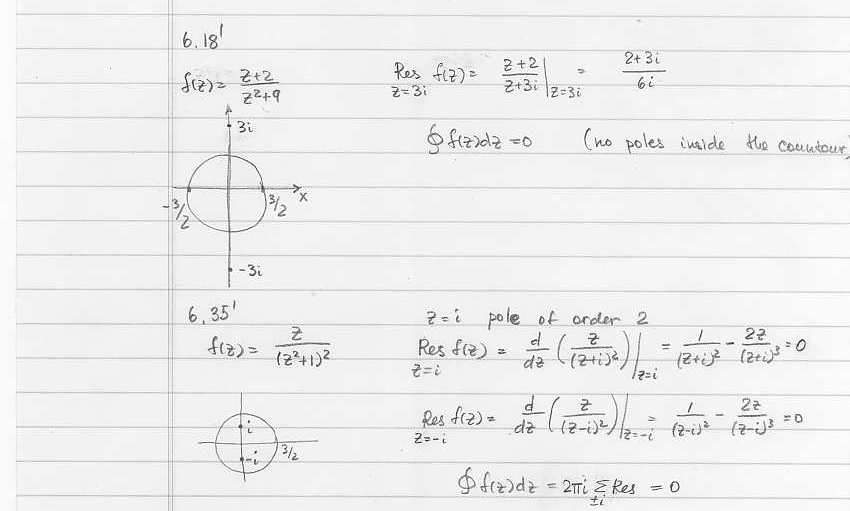 6.18'
f(z) = (z+2)/(z²+9)    Res_{z=3i} f(z) = (z+2)/(z+3i) |_{z=3i} = (2+3i)/(6i)
3i
∮ f(z)dz = 0    (no poles inside the countour)
-3/2    3/2    x
-3i
6.35'    z = i pole of order 2
f(z) = z/(z²+1)²    Res_{z=i} f(z) = d/dz ( z/(z+i)² ) |_{z=i} = 1/(z+i)² - 2z/(z+i)³ = 0
i
Res_{z=-i} f(z) = d/dz ( z/(z-i)² ) |_{z=-i} = 1/(z-i)² - 2z/(z-i)³ = 0
-i    3/2
∮ f(z)dz = 2πi Σ_{±i} Res = 0